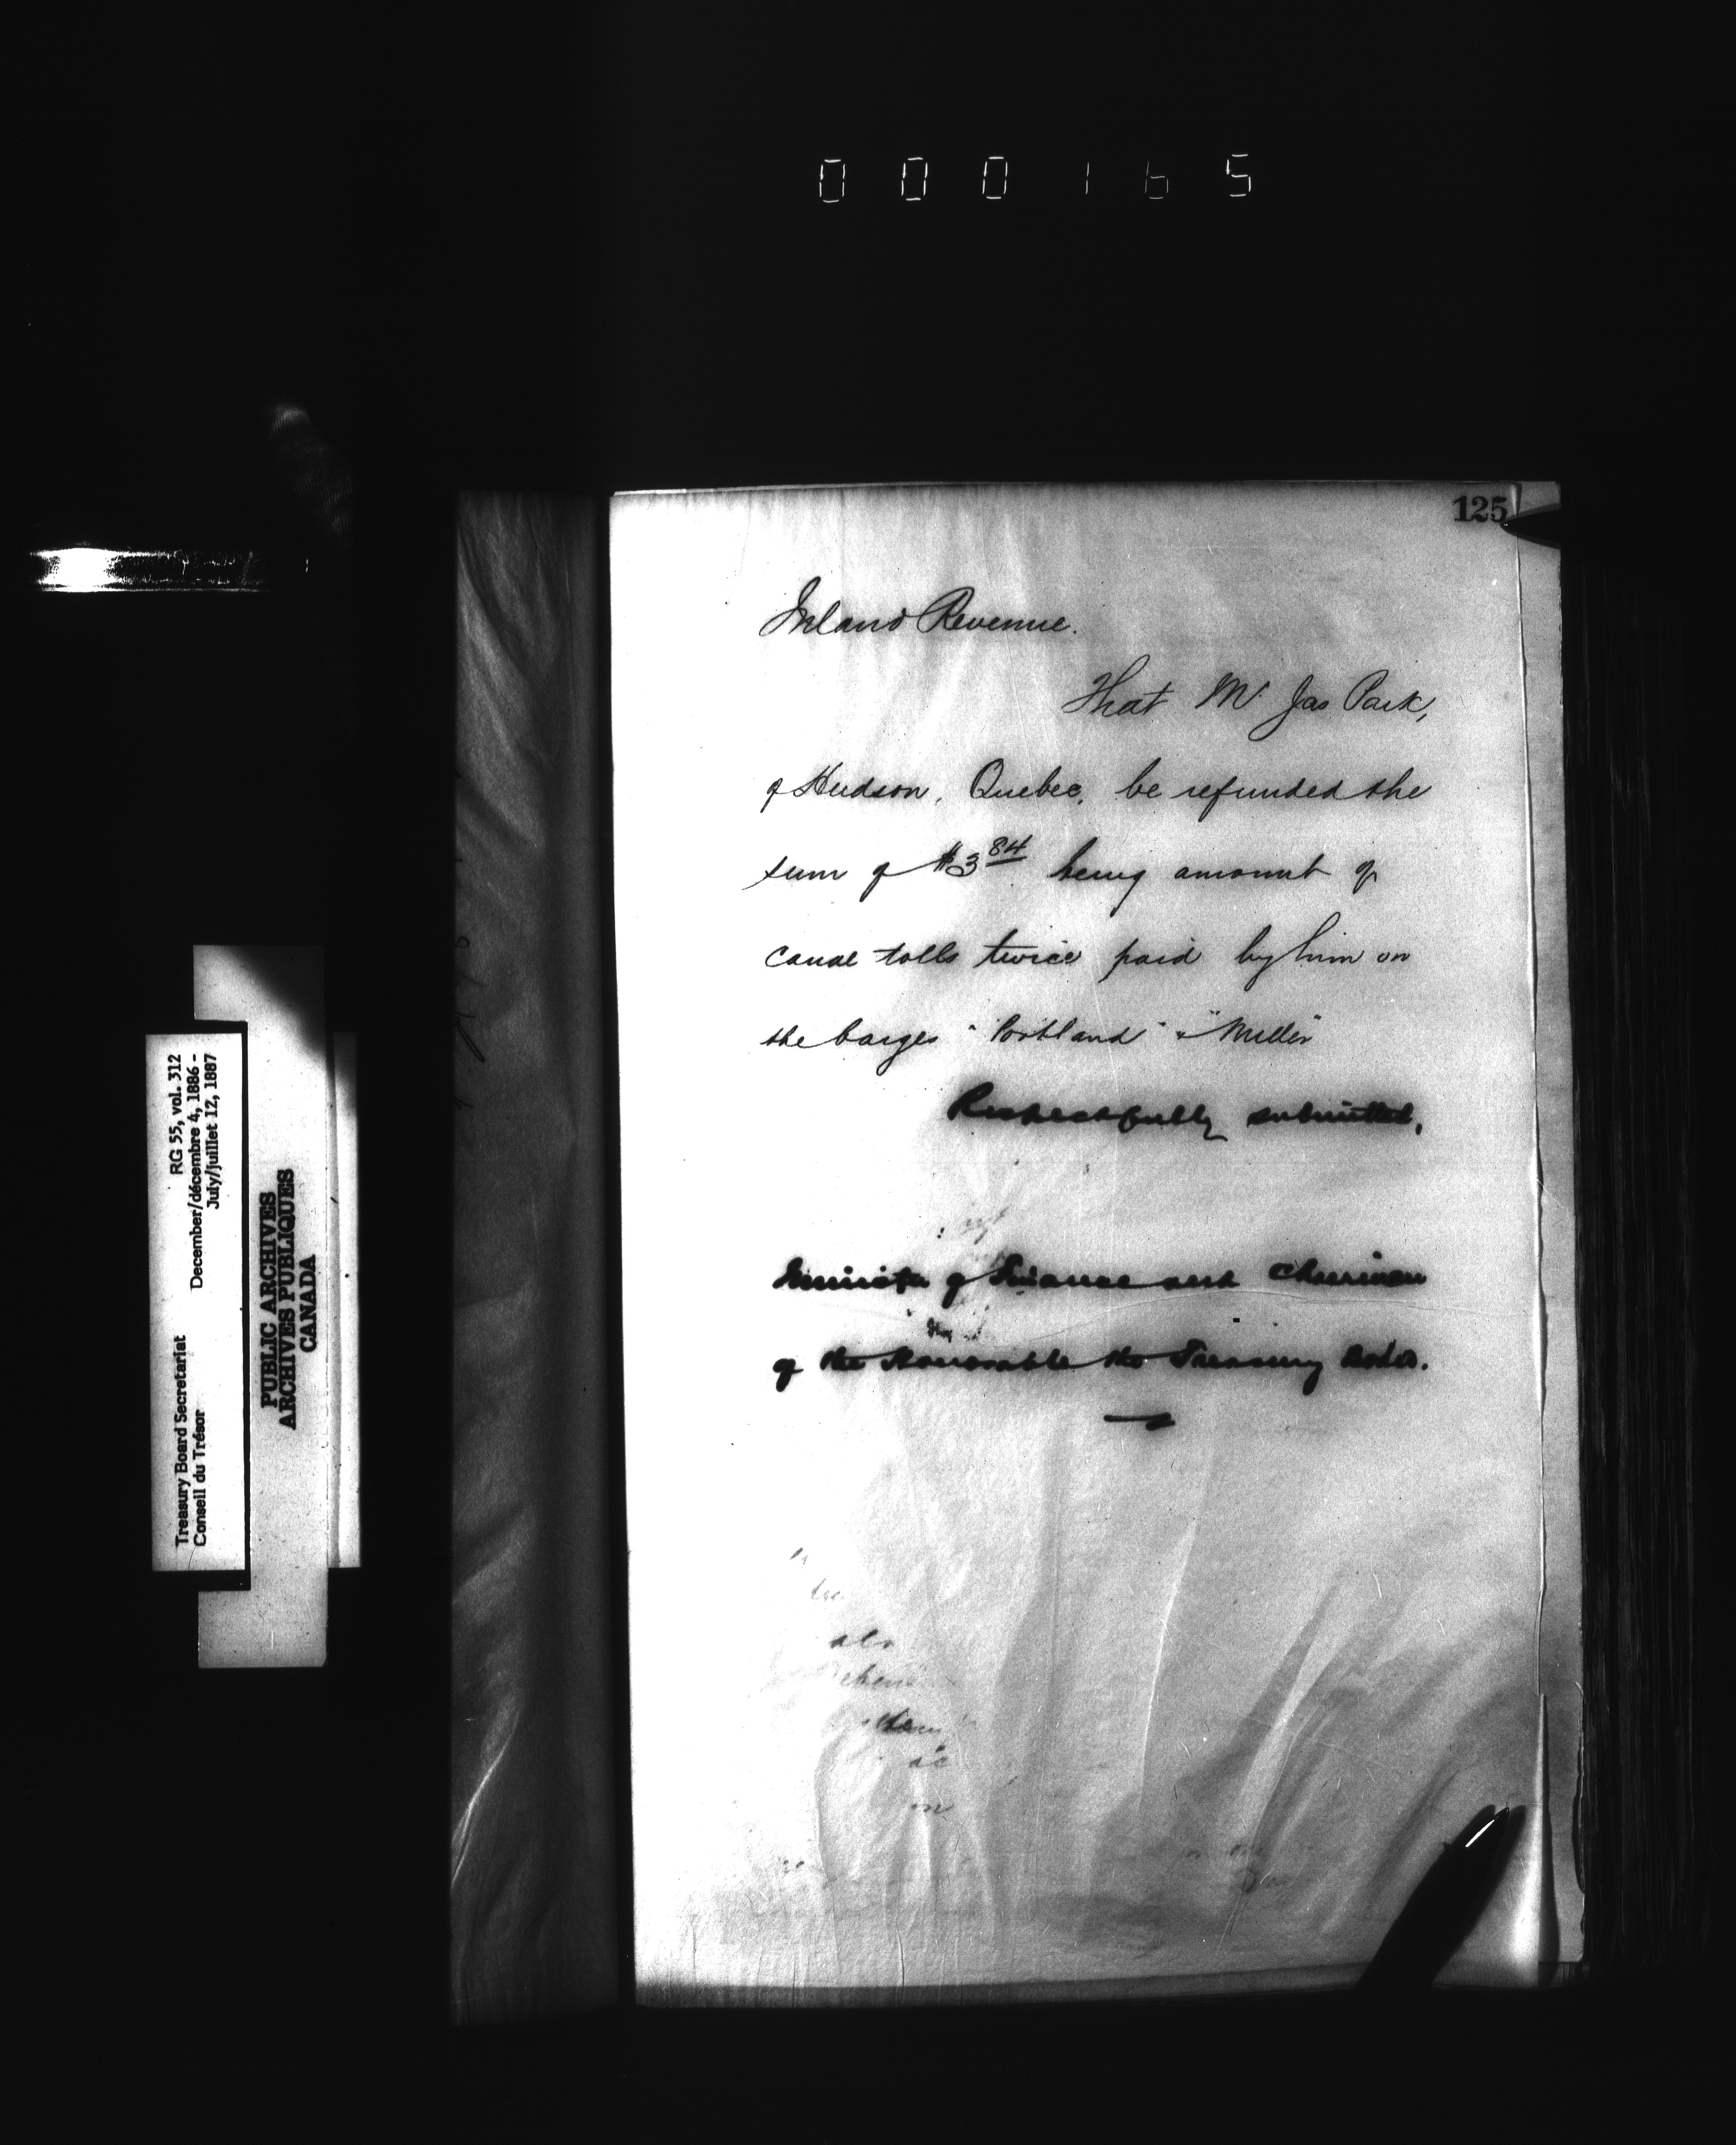 000165
125
Inland Revenue.
That Mr Jas Park,
of Hudson, Quebec, be refunded the
sum of $3 84 being amount of
canal tolls twice paid by him on
the barges "Portland" & "Miller"
Respectfully submitted,
Minister of Finance and Chairman
of the Honorable the Treasury Board.
RG 55, vol. 312
December/décembre 4, 1886 -
July/juillet 12, 1887
Treasury Board Secretariat
Conseil du Trésor
PUBLIC ARCHIVES
ARCHIVES PUBLIQUES
CANADA